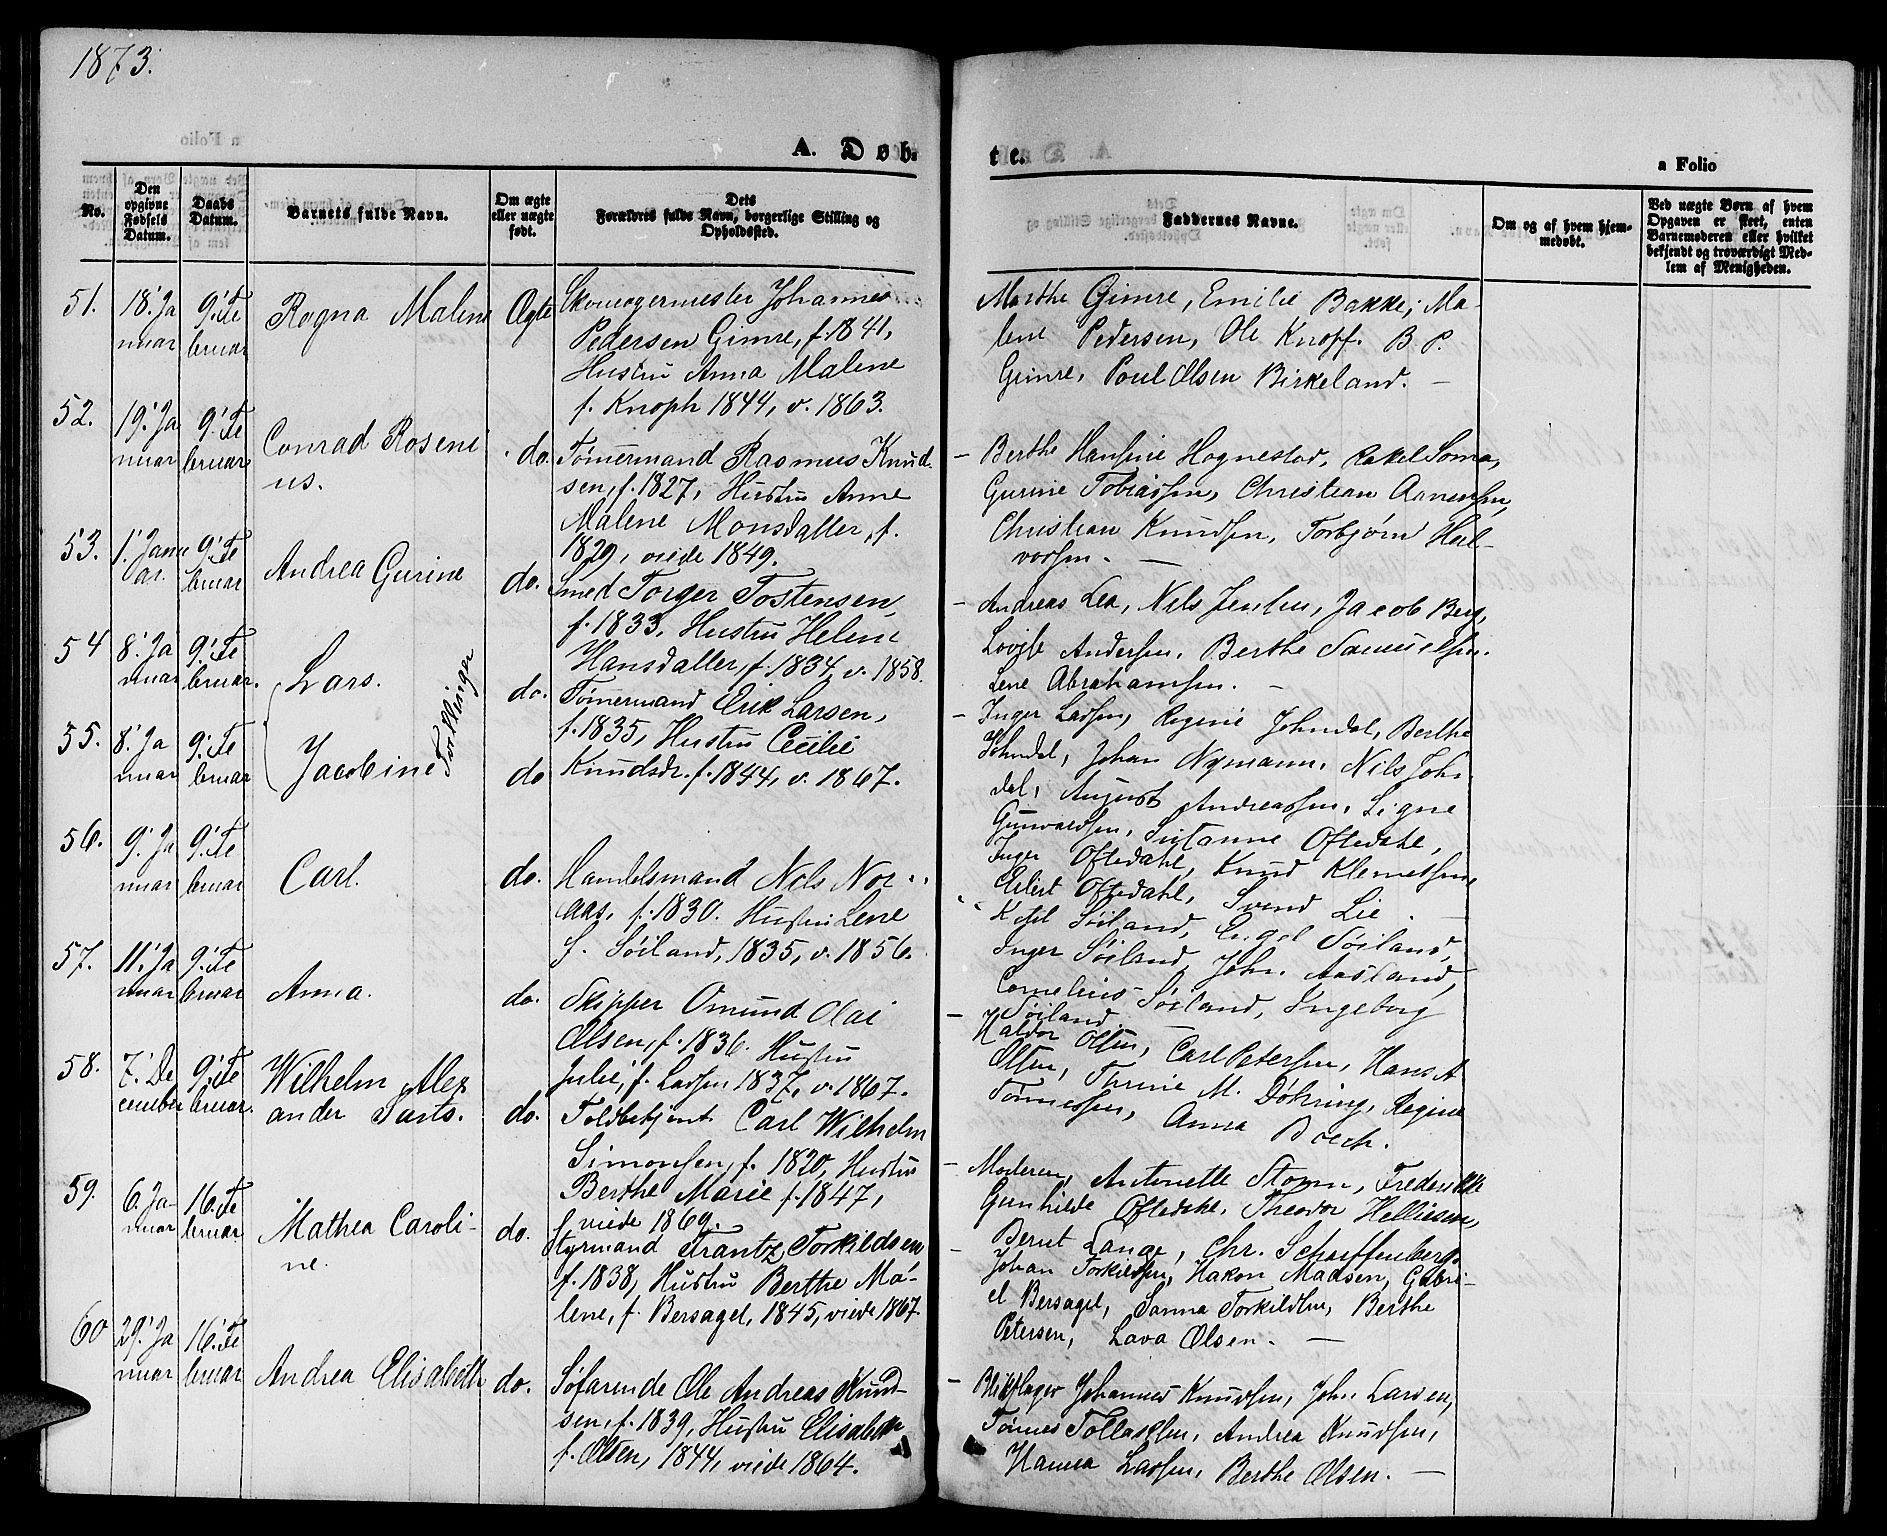 1873.
A. Døb-
te.
a Folio
No.
Den opgivne Fødsels Datum.
Daabs Datum.
Barnets fulde Navn.
Om ægte eller uægte født.
Dets Forældres fulde Navn, borgerlige Stilling og Opholdssted.
Faddernes Navne.
Om og af hvem hjemmedøbt.
Ved uægte Børn af hvem Opgaven er skeet, enten Barnemoderen eller hvilket bekjendt og troværdigt Medlem af Menigheden.
51. 18' Ja 9' Fe
nuar bruar
Ragna Malene
Ægte
Skomagermester Johannes
Pedersen Gimre, f. 1841,
Hustru Anna Malene
f. Knoph 1844, v. 1863.
Marthe Gimre, Emilie Bakke, Ma-
lene Pedersen, Ole Knoff. B. P.
Gimre, Poul Olsen Birkeland. —
52. 19' Ja 9' Fe
nuar bruar
Conrad Roseni
us.
do.
Tømermand Rasmus Knud
sen, f. 1827, Hustru Anne
Malene Monsdatter, f.
1829, viede 1849.
— Berthe Hansine Hognestad, Rakel Soma,
Gurine Tobiassen, Christian Arnesen,
Christian Knudsen, Torbjørn Hal-
vorsen. —
53. 1' Janu 9' Fe
ar. bruar
Andrea Gurine
do.
Smed Torger Tostensen,
f. 1833, Hustru Helene
Hansdatter, f. 1834, v. 1858.
— Andreas Lea, Nils Jensen, Jacob Berg,
Lovise Andersen, Berthe Samuelsen.
Lene Abrahamsen. —
54 8' Ja 9' Fe
nuar bruar.
Lars.
Tvillinger
do.
Tømermand Erik Larsen,
f. 1835, Hustru Cecilie
Knudsdr. f. 1844, v. 1867.
— Inger Larsen, Regine Johndal, Berthe
Johndal, Johan Nymann, Nils Joh-
dal, August Andreassen, Signe
Gunvaldsen, Susanne Oftedahl,
Inger Oftedahl, Knud Klemetsen
Eilert Oftedahl, Svend Lie. —
55. 8' Ja 9' Fe
nuar bruar
Jacobine
do
56. 9' Ja 9' Fe
nuar bruar
Carl.
do.
Handelsmand Nils Nor
aas, f. 1830. Hustru Lene
f. Søiland, 1835, v. 1856.
Ketil Søiland, Engel Søiland,
Inger Søiland, John Aasland,
Cornelius Søiland, Ingeborg
Søiland. —
57. 11' Ja 9' Fe
nuar bruar
Anna.
do.
Skipper Omund Olai
Olsen, f. 1836. Hustru
Julie, f. Larsen 1837, v. 1867.
— Haldor Olsen, Carl Petersen, Hans A
Olsen, Thrine M. Døhring, Regine
Tønnessen, Anna Boech.
58. 7' De 9' Fe
cember bruar.
Wilhelm Alex
ander Parts.
do.
Toldbetjent Carl Wilhelm
Simonsen, f. 1820, Hustru
Berthe Marie f. 1847,
viede 1869.
— Moderen, Antonette Storm, Frederikke
Gunhilde Oftedahl, Theodor Helliesen,
Bernt Lange, Chr. Scharffenberg.
59. 6. Ja- 16. Fe
nuar bruar
Mathea Caroli-
ne.
do.
Styrmand Frantz Torkildsen
f. 1838, Hustru Berthe Ma-
lene, f. Bersagel, 1845, viede 1867
— Johan Torkildsen, Hakon Madsen, Gabri-
el Bersagel, Sanna Torkildsen, Berthe
Petersen, Lava Olsen. —
60 29' Ja 16. Fe
nuar bruar
Andrea Elisabeth
do.
Søfarende Ole Andreas Knud-
sen, f. 1839, Hustru Elisabeth
f. Olsen, 1844, viede 1864.
— Blikslager Johannes Knudsen, John Larsen,
Tønnes Tollaksen, Andrea Knudsen,
Hanna Larsen, Berthe Olsen. —